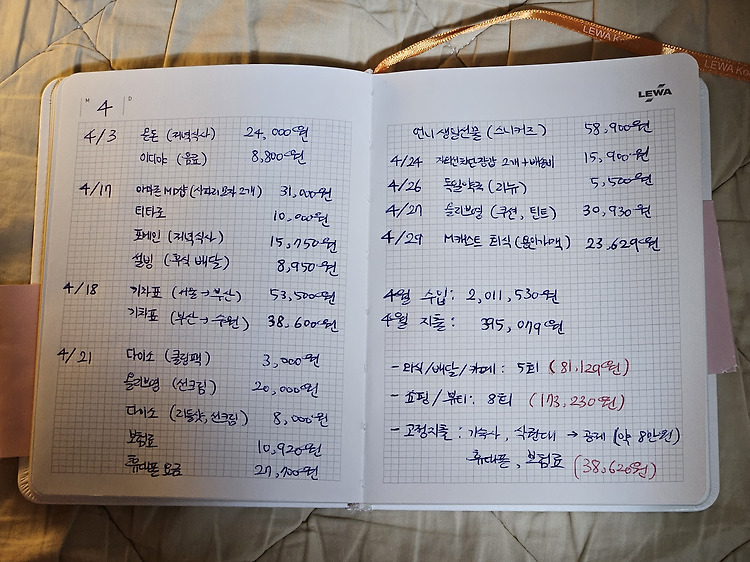 M 4 D
4/3 온돈 (저녁식사) 24,000원
이디야 (음료) 8,800원
4/17 (사파리 모자 2개) 31,000원
티타로 10,000원
포메인 (저녁식사) 15,750원
설빙 (후식 배달) 8,950원
4/18 기차표 (서울→부산) 53,500원
기차표 (부산→수원) 38,600원
4/21 다이소 (쿨링팩) 3,000원
올리브영 (선크림) 20,000원
다이소 (리들샷, 선크림) 8,000원
보험료 10,920원
휴대폰 요금 27,700원
LEWA
언니 생일선물 (스니커즈) 58,900원
4/24 2개 + 배송비 15,900원
4/26 독일약국 (리뉴) 5,500원
4/27 올리브영 (쿠션, 틴트) 30,930원
4/29 M캐스트 회식 23,629원
4월 수입: 2,011,530원
4월 지출: 395,079원
- 외식/배달/카페: 5회 (81,129원)
- 쇼핑/뷰티: 8회 (173,230원)
- 고정지출: 기숙사, 식권대 → 공제 (약 8만원)
휴대폰, 보험료 (38,620원)
LEWA
LEWA